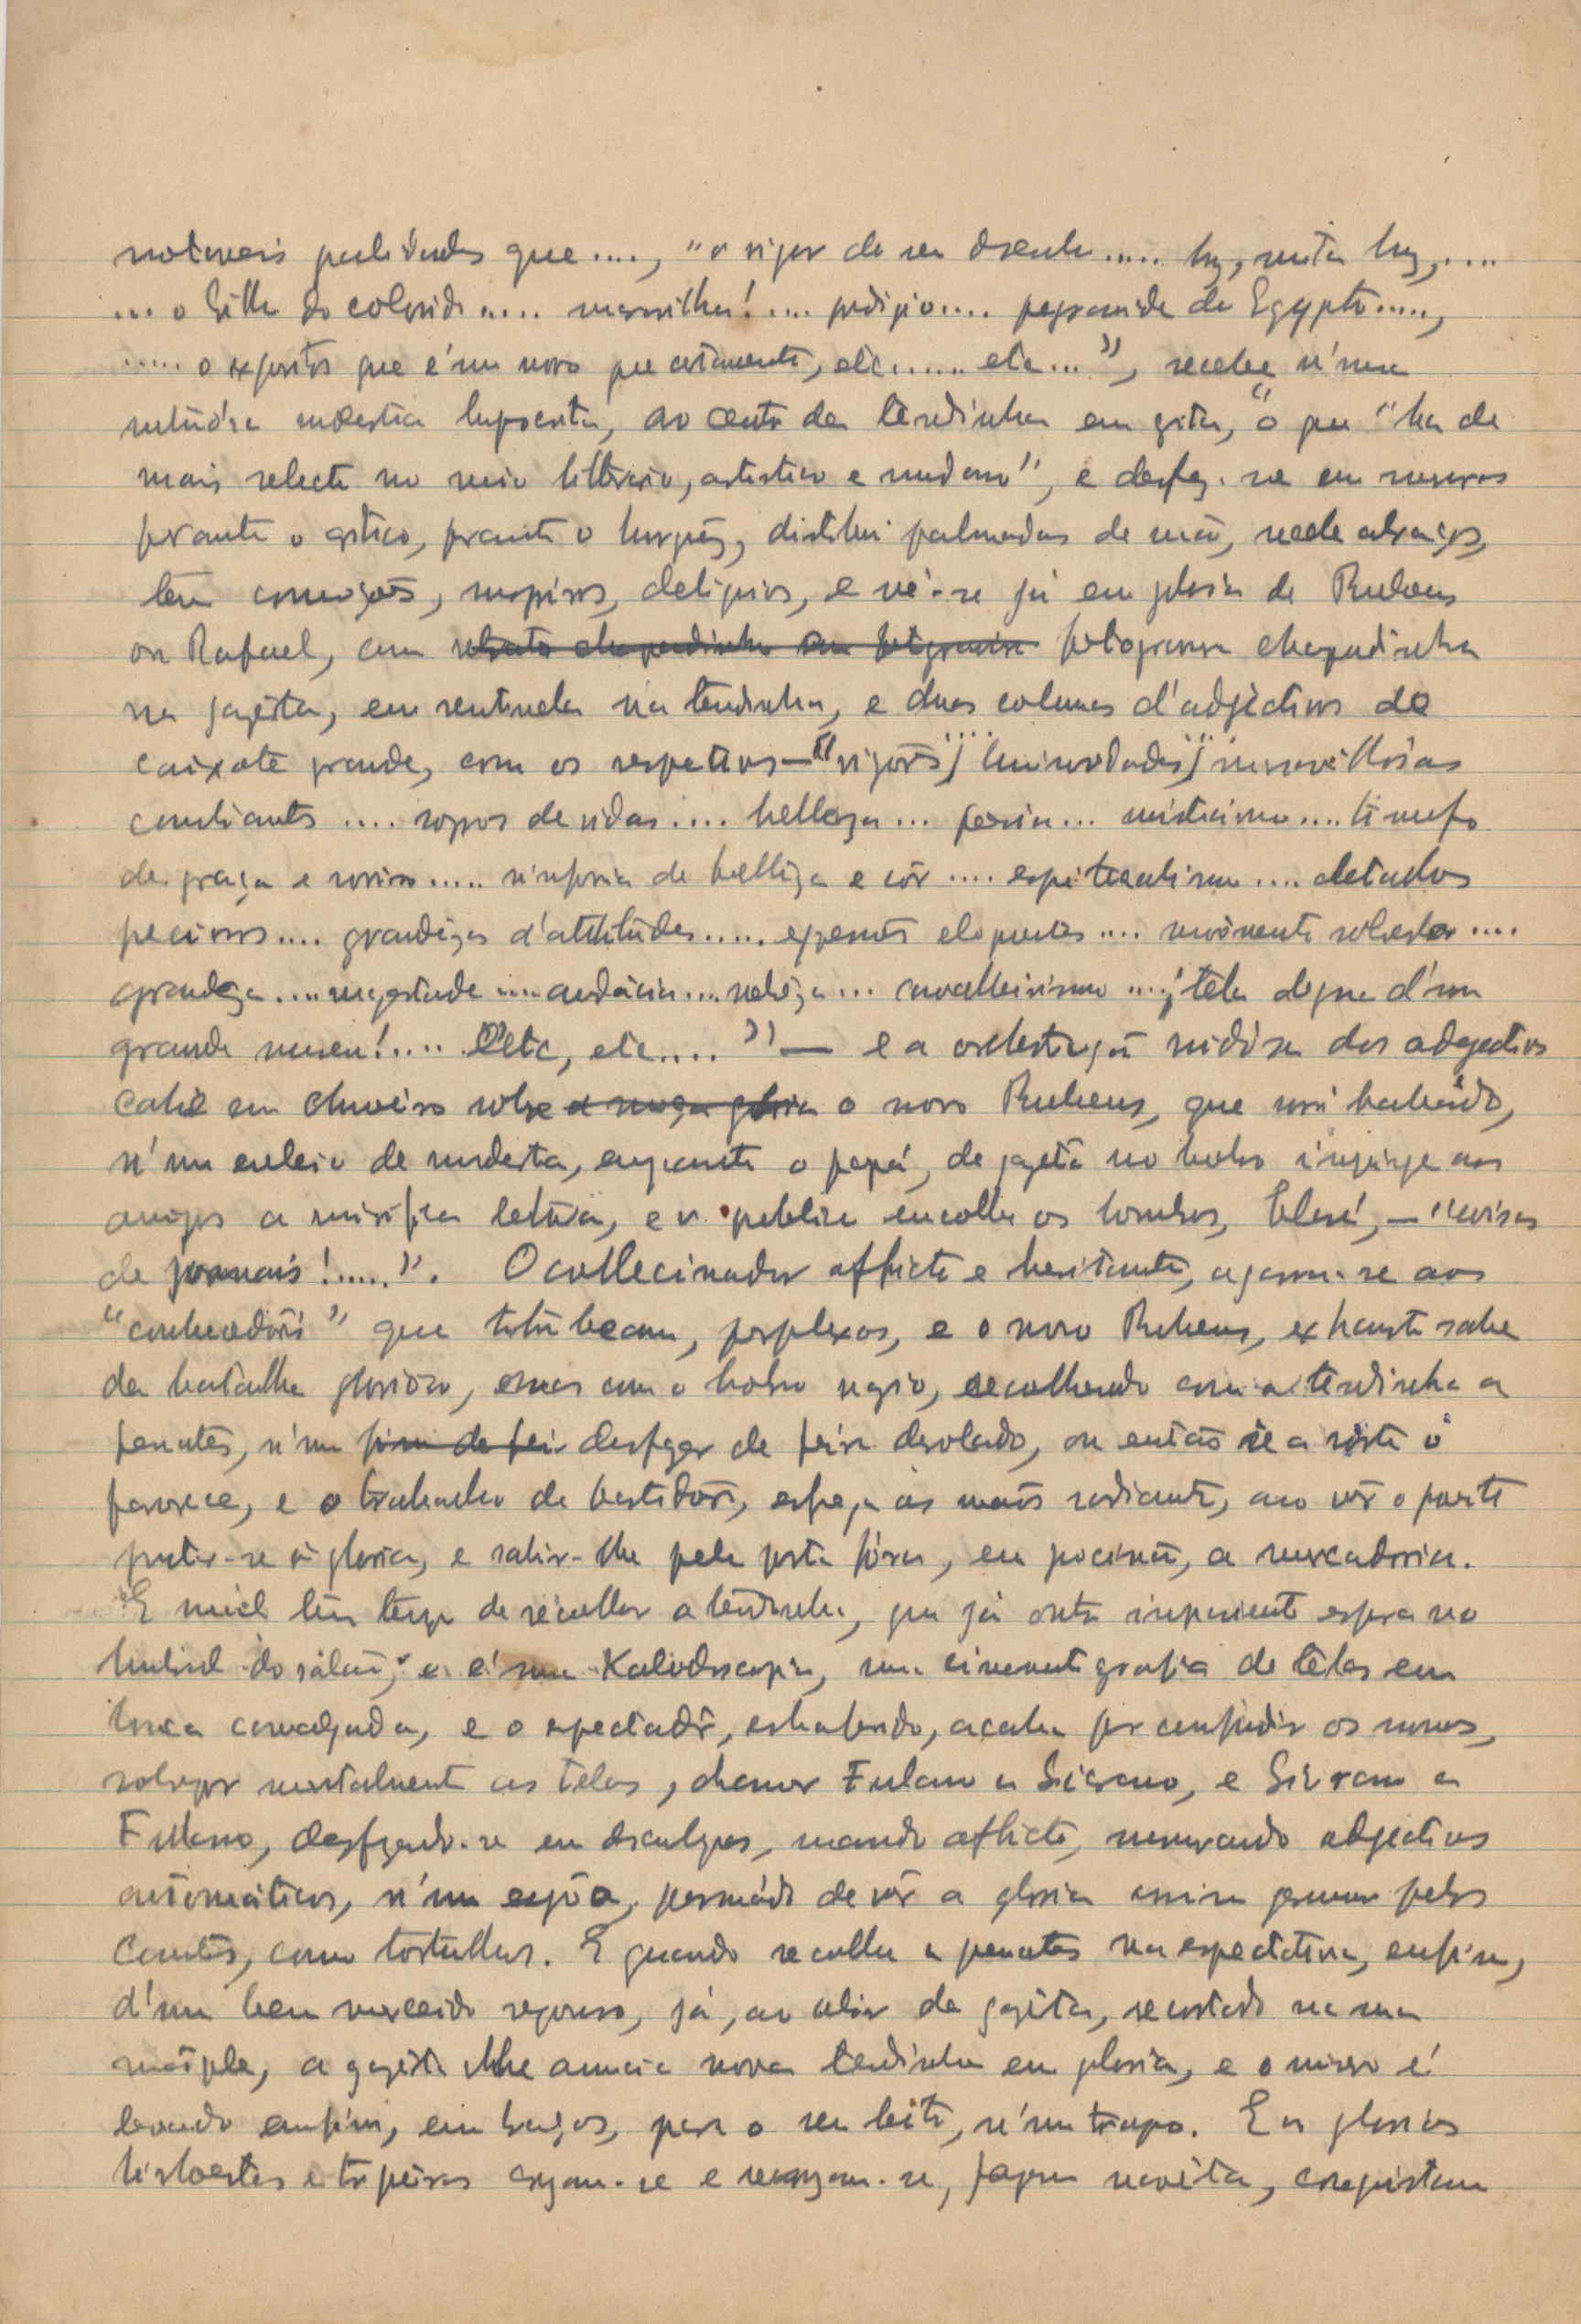 notaveis qualidades que...., "o vigor do seu desenho..... luz, muita luz,....
... o brilho do colorido.... maravilha!.... prodigio.... pyramide do Egypto.....,
..... o expositor que é um novo que certamente, etc...... etc...", recebe n'uma
modestia, ao centro da tendinha em gita, "o que "ha de
mais selecto no meio litterario, artistico e mundano", e desfaz-se em
perante o critico, perante o burguêz, distribui palmadas de mão, recebe abraços,
tem comoções, suspiros, deliquios, e vê-se já em gloria de Rubens
ou Rafael, com fotogravura chapadinha
na gazeta, em sentinela na tendinha, e duas colunas d'adjectivos de
caixote grande, com os respetivos — "vigores, luminosidades, maravilhosas
cambiantes .... sopros de vida.... belleza... poesia... misticismo.... triunfo
de graça e sorriso..... sinfonia de belleza e côr .... espiritualismo.... detalhes
preciosos.... grandezas d'attitudes..... expressões eloquentes.... soberba....
grandeza.... magestade.... audácia... nobreza... cavalheirismo.... tela digna d'um
grande museu!.... etc, etc...." — e a orchestração ruidosa dos adjectivos
cahe em chuveiro sobre o novo Rubens, que sorri babádo,
n'um enleio de modestia, enquanto o papá, de gazeta no bolso impinge aos
amigos a mirifica leitura, e o publico encolhe os hombros, blasé, — "coisas
de jornais!.....". O colleccionador afflicto e hesitante, agarra-se aos
"conhecedores" que titubeam, perplexos, e o novo Rubens, exhausto sahe
da batalha glorioso, mas com o bolso vazio, recolhendo com a tendinha a
penates, n'um desfazer de feira desolado, ou então se a sorte o
favorece, e o trabalho de bastidores, esfrega as mãos radiante, ao vêr o parto
a gloria, e sahir-lhe pela porta fóra, em procissão, a mercadoria.
E mal tem tempo de recolher a tendinha, que já outro impaciente espera no
humbral do salão, e é um Kaleidoscopio, uma cinematografia de télas em
louca cavalgada, e o espectador, esbaforido, acaba por confundir os nomes,
mentalmente as telas, chamar Fulano a Sicrano, e Sicrano a
Fulano, desfazendo-se em desculpas, suando aflicto, murmurando adjectivos
automáticos, pasmádo de vêr a gloria assim germinar pelos
cantos, como tortulhos. E quando recolhe a penates na espectativa, enfim,
d'um bem merecido repouso, já, ao abrir da gazeta, recostado na sua
maiple, a gazeta lhe anuncia nova tendinha em gloria, e o misero é
levado emfim, em braços, para o seu leito, n'um trapo. E as glorias
e cruzam-se e recruzam-se, fazem